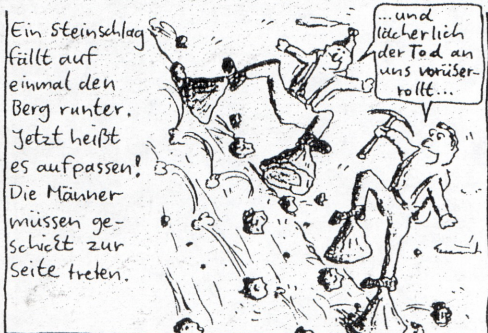 Ein Steinschlag
fällt auf
einmal den
Berg runter.
Jetzt heißt
es aufpassen!
Die Männer
müssen ge-
schickt zur
Seite treten.
...und
lächerlich
der Tod an
uns vorüber-
rollt...